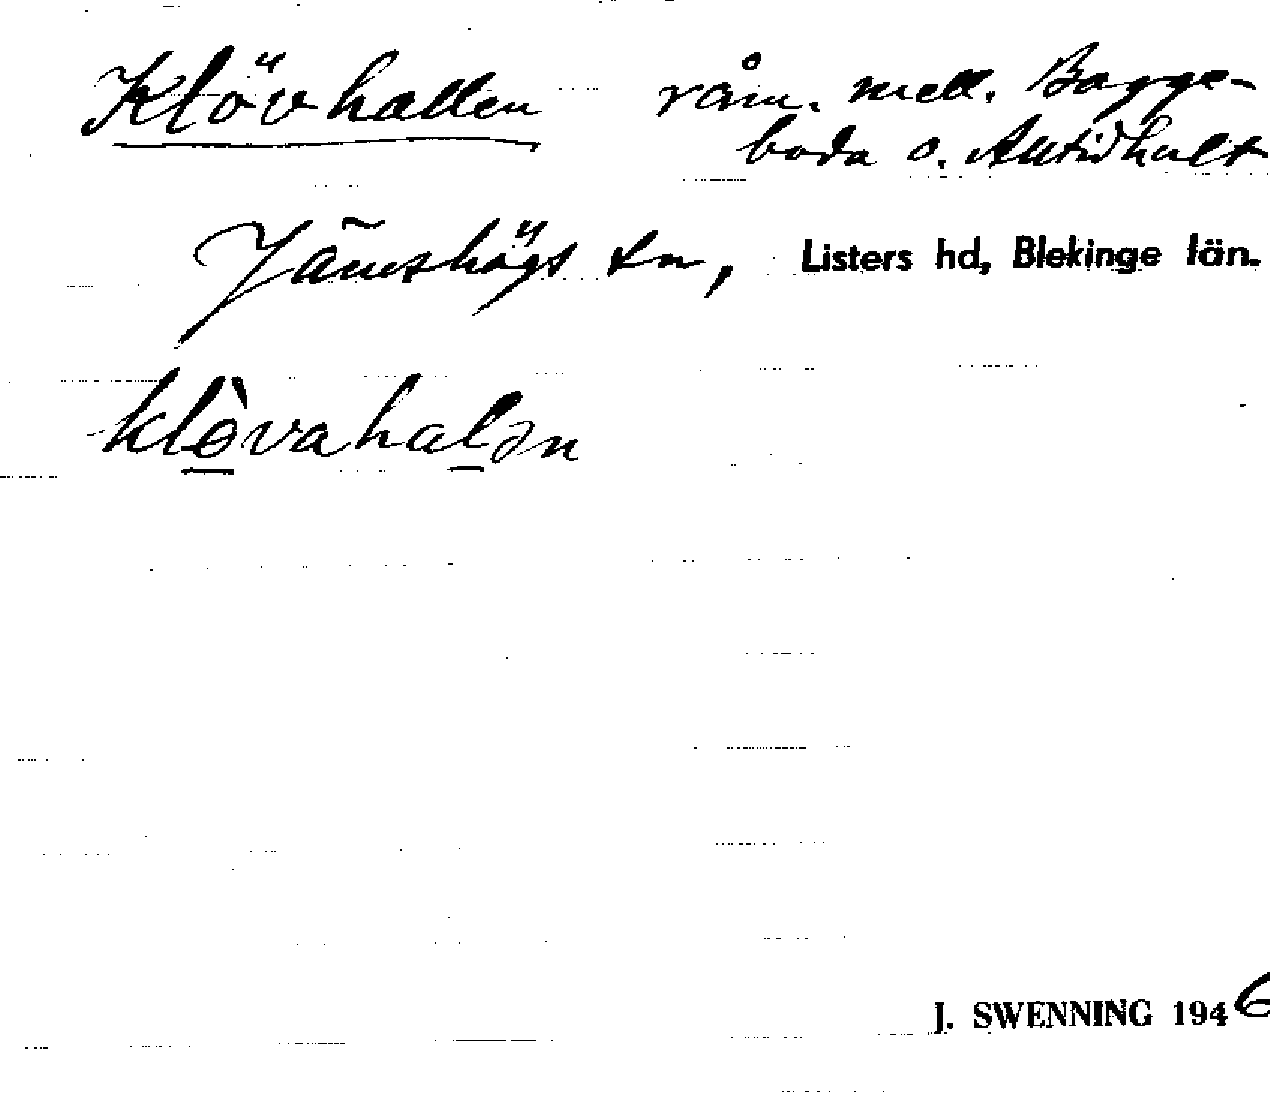 Klövhallen råm. mell. Bagge-
boda o. Alltidhult
Jämshögs sn, Listers hd, Blekinge län.
klòvahalən
J. SWENNING 1946